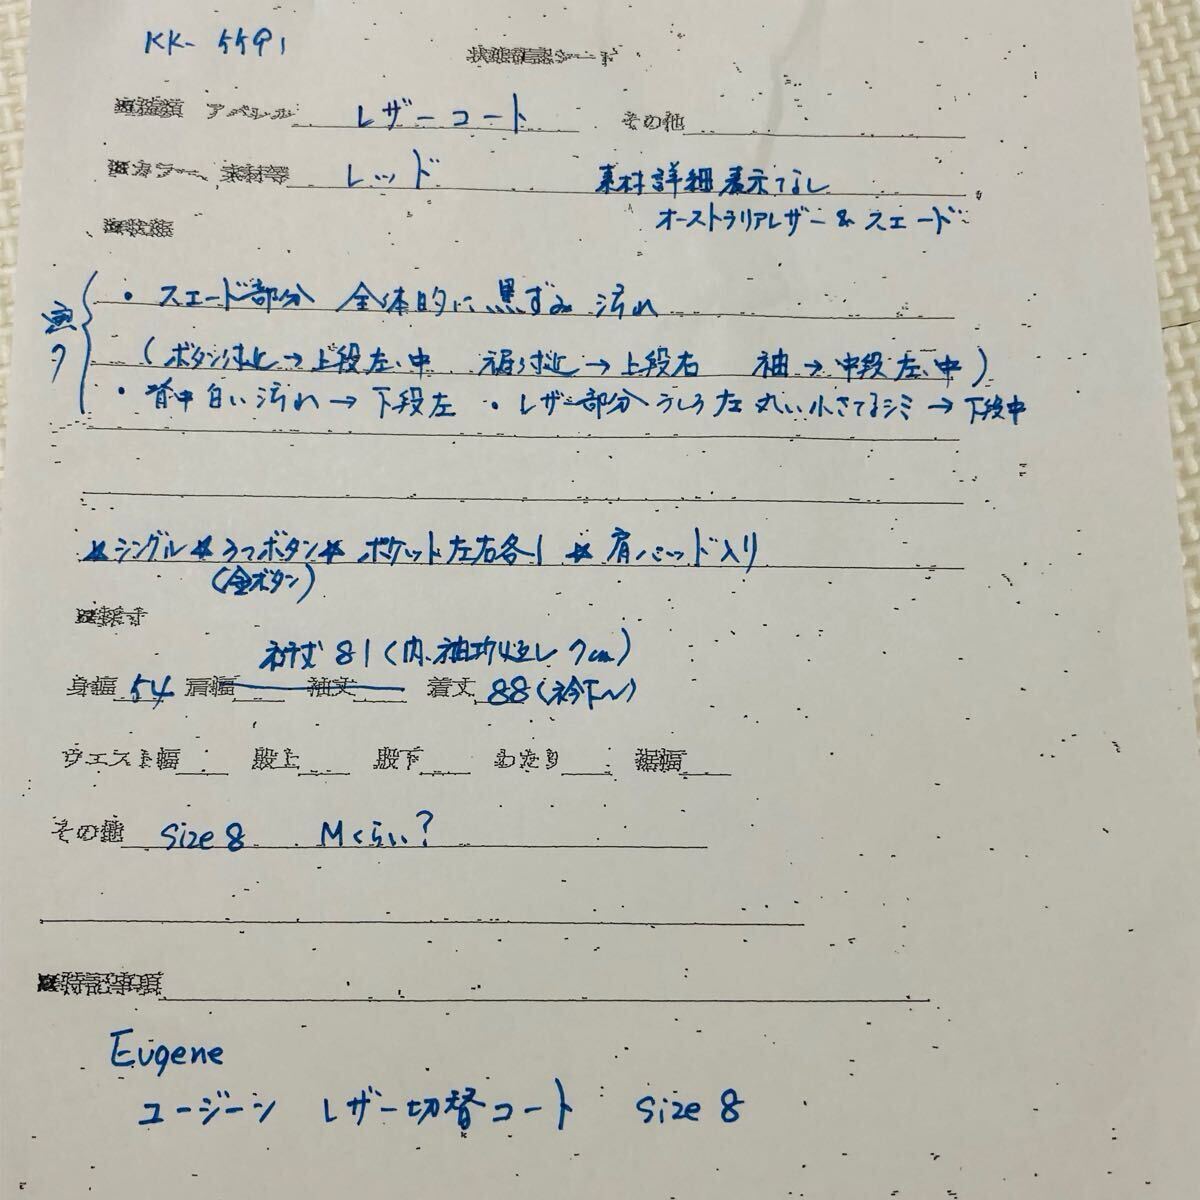 KK-5591
状態確認シート
■種類 アパレル レザーコート その他
■カラー、素材等 レッド 素材詳細表示なし
オーストラリアレザー & スエード
■状態
・スエード部分 全体的に黒ずみ 汚れ
(ボタン付近→上段左、中 裾付近→上段右 袖→中段左、中)
・背中白い汚れ→下段左 ・レザー部分うしろ左丸い小さなシミ→下段中
☆シングル☆3つボタン☆ポケット左右各1 ☆肩パッド入り
(金ボタン)
■採寸
裄丈81(内、袖折返し7cm)
身幅 54 肩幅 袖丈 着丈 88(衿下〜)
ウエスト幅 股上 股下 わたり 裾幅
その他 size 8 Mくらい?
■特記事項
Eugene
ユージーン レザー切替コート size 8